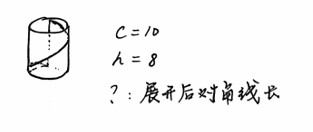 C=10
h=8
?:展开后对角线长